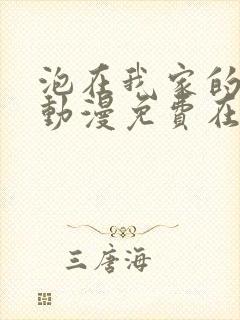 泡在我家的
動漫免費在
三唐海